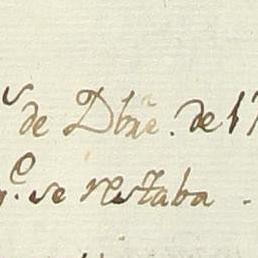 de Dbre. de 17
q.e se restaba